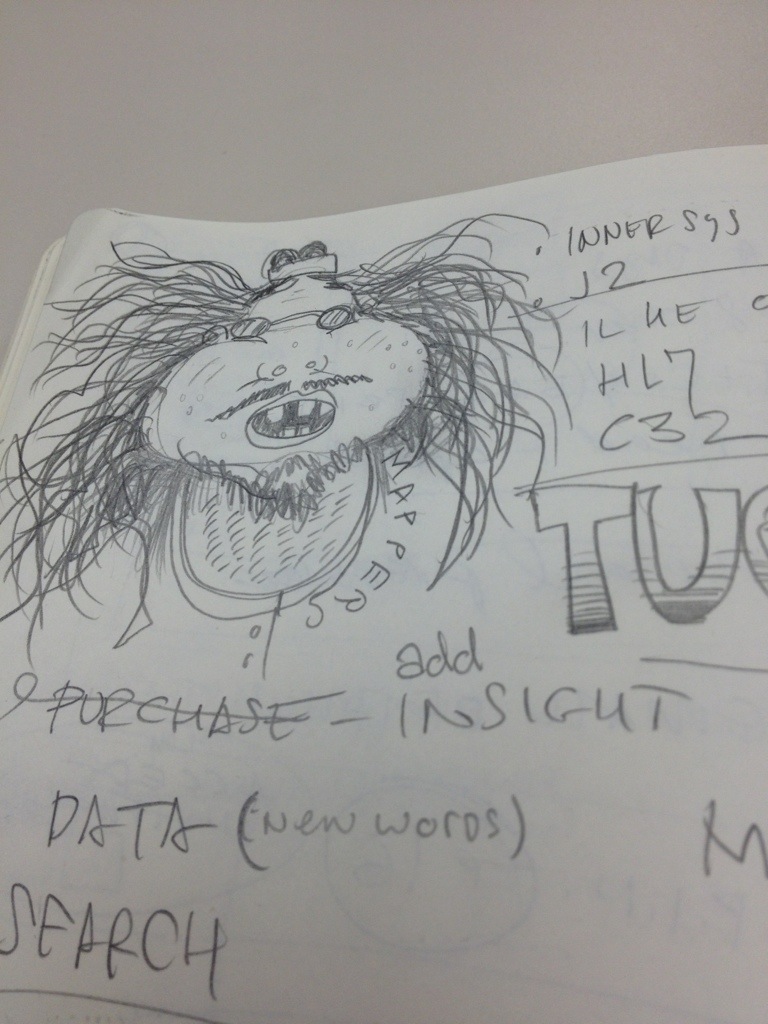 INNERSYS
J2
IL HE
HL7
C32
TU
MAPPERS
add
PURCHASE - INSIGHT
DATA (New words)
M
SEARCH